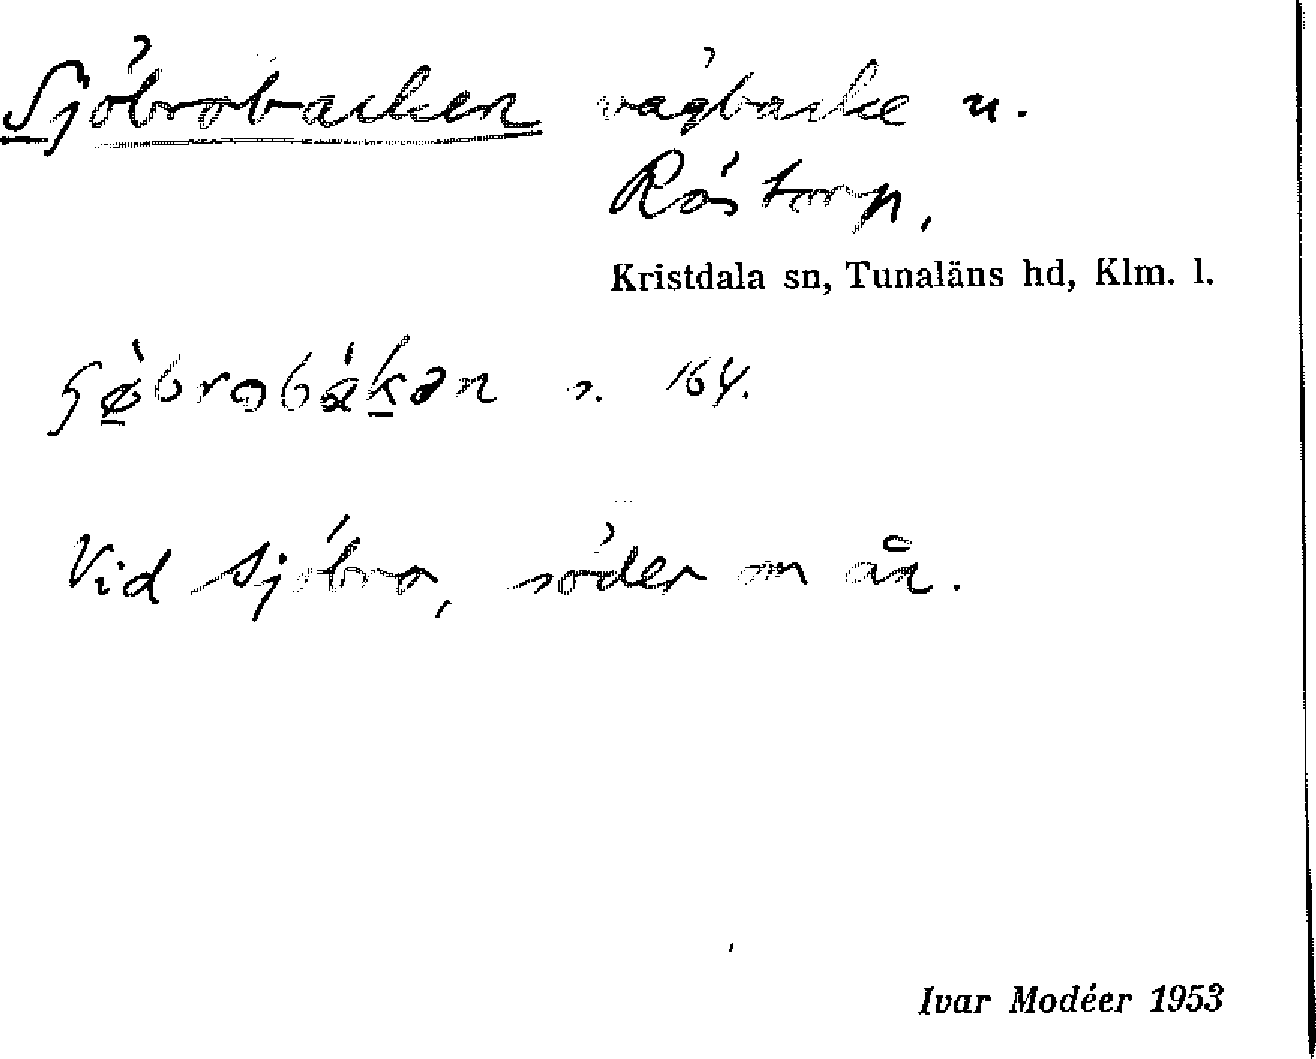 Sjöbrobacken vägbacke u.
Röstorp,
Kristdala sn, Tunaläns hd, Klm. l.
s. 164.
Vid Sjöbro, söder om ån.
Ivar Modéer 1953